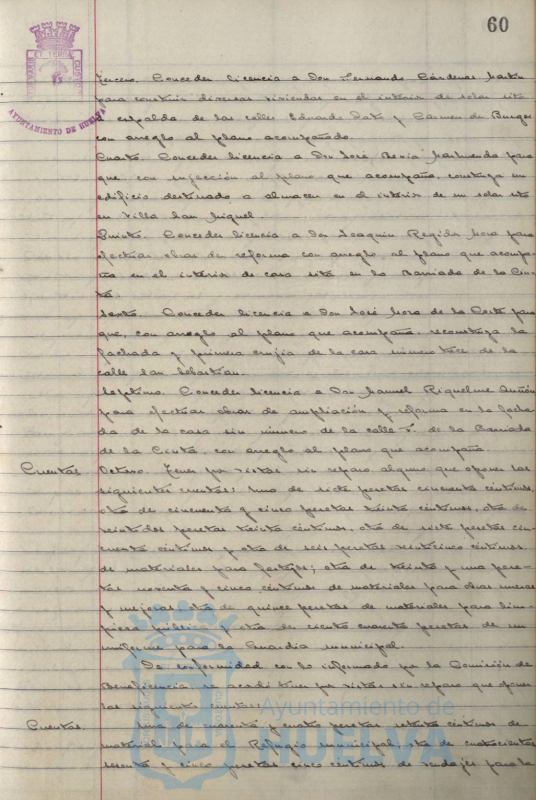 60
AYUNTAMIENTO DE HUELVA
Tercero. Conceder licencia a Don Fernando Cárdenas Martín
para construir diversas viviendas en el interior de solar sito
a espalda de las calles Eduardo Dato y Carmen de Burgos
con arreglo al plano acompañado.
Cuarto. Conceder licencia a Don José para
que, con sujección al plano que acompaña, construya un
edificio destinado a almacen en el interior de un solar sito
en Villa San Miguel.
Quinto. Conceder licencia a Don Joaquín Regidor Mora para
efectuar obras de reforma con arreglo al plano que acompa-
ña en el interior de casa sita en la Barriada de la Cin-
ta.
Sexto. Conceder licencia a Don José Mora de la Corte para
que, con arreglo al plano que acompaña, reconstruya la
fachada y primera crujía de la casa número trece de la
calle San Sebastián.
Séptimo. Conceder licencia a Don Manuel Riquelme
para efectuar obras de ampliación y reforma en la facha-
da de la casa sin número de la calle F. de la Barriada
de la Cinta, con arreglo al plano que acompaña.
Cuentas. Octavo. Tener por vistas sin reparo alguno que oponer las
siguientes cuentas: una de siete pesetas cincuenta céntimos,
otra de cincuenta y cinco pesetas treinta céntimos, otra de
veintidos pesetas treinta céntimos, otra de siete pesetas cin-
cuenta céntimos y otra de seis pesetas veinticinco céntimos,
de materiales para festejos; otra de treinta y una pese-
tas noventa y cinco céntimos de materiales para obras nuevas
y mejoras, otra de quince pesetas de materiales para lim-
pieza pública y otra de ciento cuarenta pesetas de un
uniforme para la Guardia municipal.
De conformidad con lo informado por la Comisión de
Beneficencia, se acordó tener por vistas sin reparo que oponer
las siguientes cuentas:
Cuentas. Una de cuarenta y cuatro pesetas setenta céntimos de
material para el Refugio Municipal, otra de cuatrocientas
sesenta y cinco pesetas cinco céntimos de vendajes para la
Ayuntamiento de
HUELVA